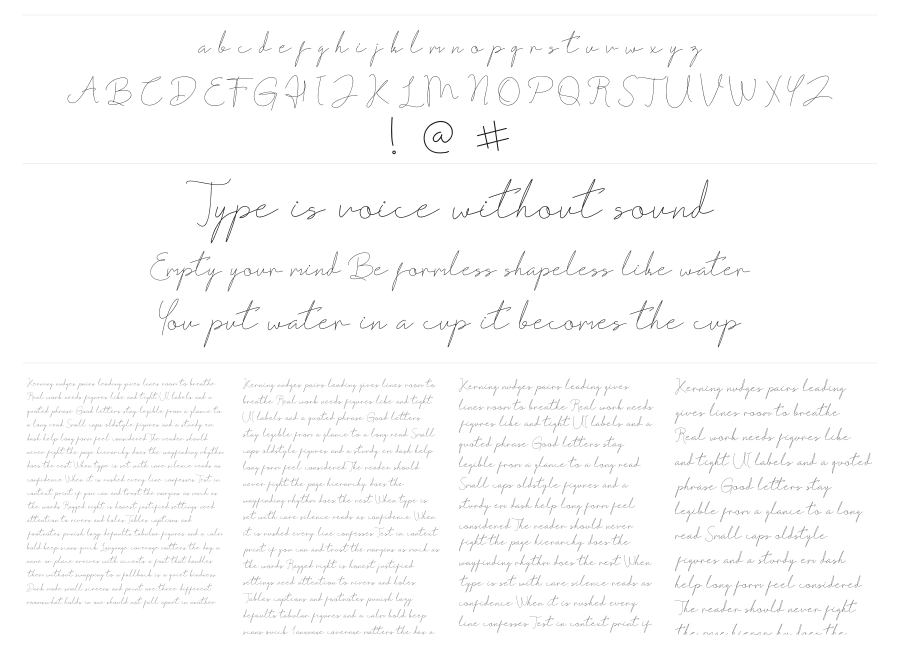 a b c d e f g h i j k l m n o p q r s t u v w x y z
A B C D E F G H I J K L M N O P Q R S T U V W X Y Z
! @ #
Type is voice without sound
Empty your mind Be formless shapeless like water
You put water in a cup it becomes the cup
Kerning nudges pairs leading gives lines room to breathe
Real work needs figures like and tight UI labels and a
quoted phrase Good letters stay legible from a glance to
a long read Small caps oldstyle figures and a sturdy en
dash help long form feel considered The reader should
never fight the page hierarchy does the wayfinding rhythm
does the rest When type is set with care silence reads as
confidence When it is rushed every line confesses Test in
context print if you can and trust the margins as much as
the words Ragged right is honest justified settings need
attention to rivers and holes Tables captions and
footnotes punish lazy defaults tabular figures and a calm
bold keep scans quick Language coverage matters the day a
name or place arrives with accents a font that handles
them without snapping to a fallback is a quiet kindness
Dark mode small screens and print are three different
rooms what holds in one should not fall apart in another
Kerning nudges pairs leading gives lines room to
breathe Real work needs figures like and tight
UI labels and a quoted phrase Good letters
stay legible from a glance to a long read Small
caps oldstyle figures and a sturdy en dash help
long form feel considered The reader should
never fight the page hierarchy does the
wayfinding rhythm does the rest When type is
set with care silence reads as confidence When
it is rushed every line confesses Test in context
print if you can and trust the margins as much as
the words Ragged right is honest justified
settings need attention to rivers and holes
Tables captions and footnotes punish lazy
defaults tabular figures and a calm bold keep
scans quick Language coverage matters the day a
Kerning nudges pairs leading gives
lines room to breathe Real work needs
figures like and tight UI labels and a
quoted phrase Good letters stay
legible from a glance to a long read
Small caps oldstyle figures and a
sturdy en dash help long form feel
considered The reader should never
fight the page hierarchy does the
wayfinding rhythm does the rest When
type is set with care silence reads as
confidence When it is rushed every
line confesses Test in context print if
Kerning nudges pairs leading
gives lines room to breathe
Real work needs figures like
and tight UI labels and a quoted
phrase Good letters stay
legible from a glance to a long
read Small caps oldstyle
figures and a sturdy en dash
help long form feel considered
The reader should never fight
the page hierarchy does the